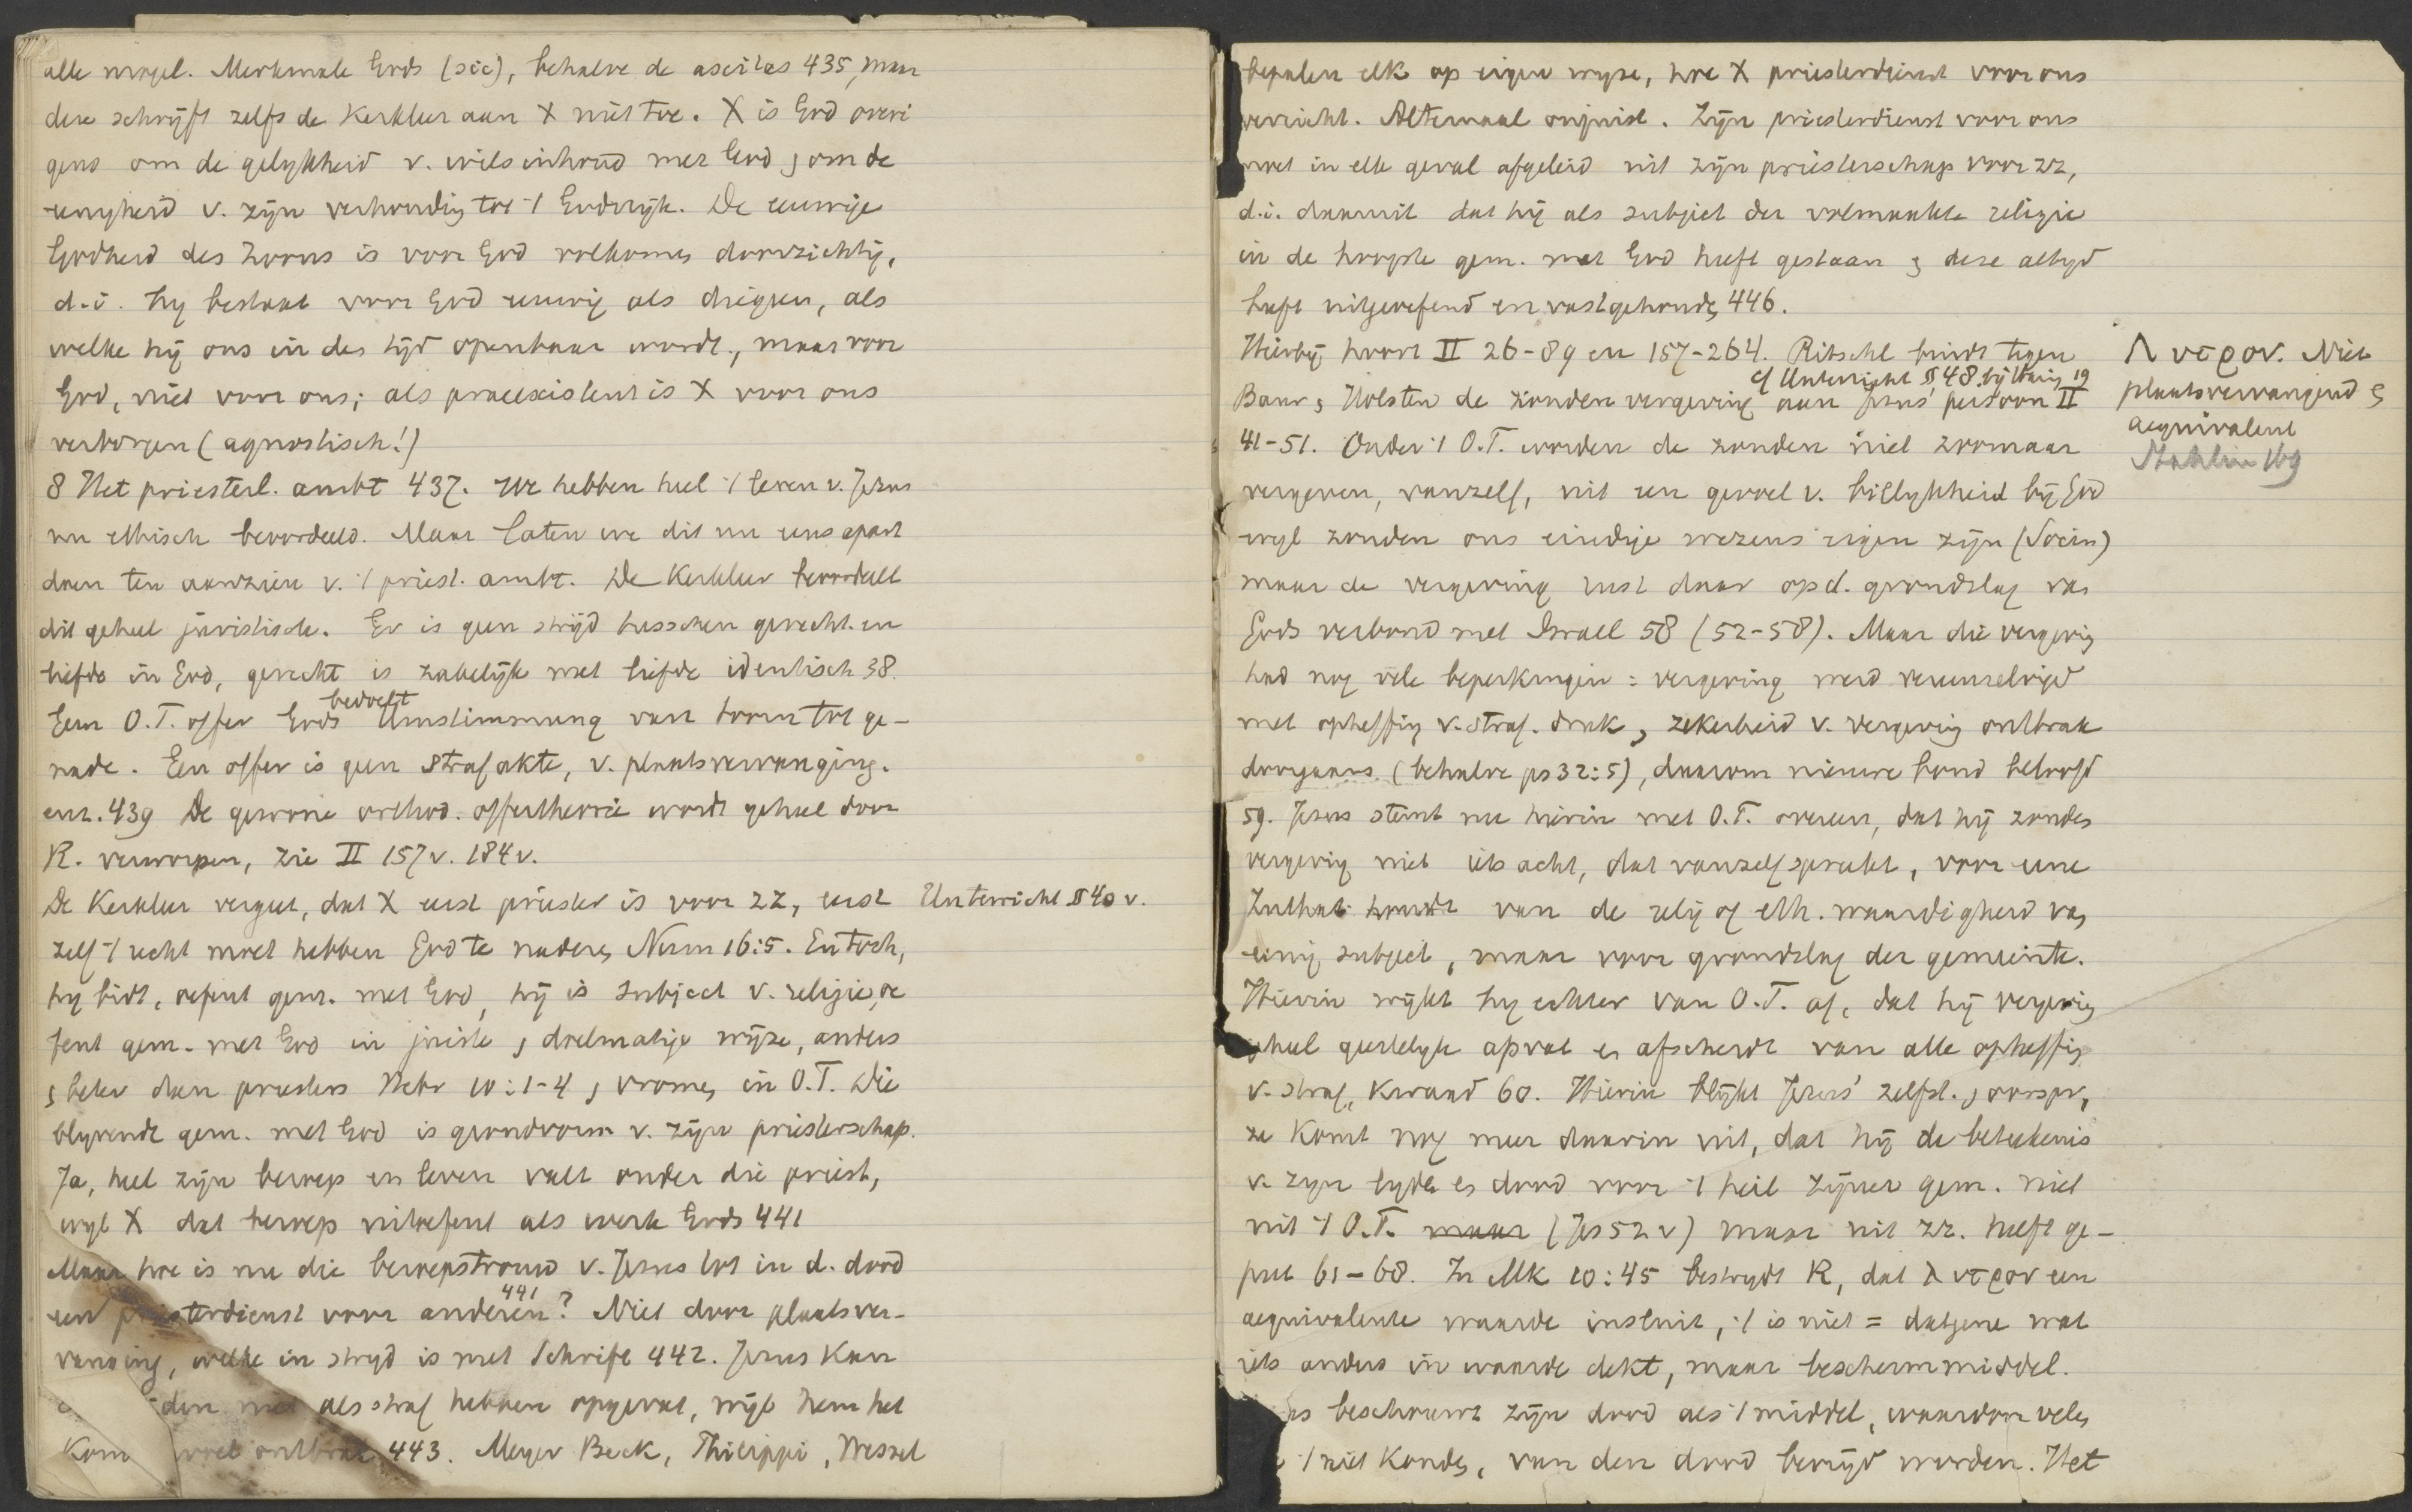 alle mogel. Merkmale Gods (sic), behalve de aseitas 435, maar
deze schrijft zelfs de Kerkleer aan X niet toe. X is God overi
gens om de gelykheid v. wilsinhoud met God , om de
eenigheid v. zijn verhouding tot 't Godsrijk. De eeuwige
Godheid des Zoons is voor God volkomen doorzichtig,
d.i. hy bestaat voor God eeuwig als diegeen, als
welke hij ons in den tijd openbaar wordt, maar voor
God, niet voor ons; als praeexistent is X voor ons
verborgen (agnostisch!)
8 Het priesterl. ambt 437. We hebben heel 't leven v. Jezus
nu ethisch beoordeeld. Maar laten we dit nu eens apart
doen ten aanzien v. 't priest. ambt. De Kerkleer beoordeelt
dit geheel juristisch. Er is geen strijd tusschen gerecht. en
liefde in God, gerecht is zakelijk met liefde identisch 38.
bedoelt
Geen O.T. offer Gods Umstimmung van toorn tot ge-
nade. Een offer is geen strafakte, v. plaatsvervanging.
enz. 439 De gewone orthod. offertheorie wordt geheel door
R. verworpen, zie II 157 v. 184 v.
De Kerkleer vergeet, dat X eerst priester is voor zz, eerst Unterricht § 40 v.
zelf 't recht moet hebben God te naderen, Num 16:5. En toch,
hy bidt, oefent gem. met God, hij is subject v. religie, oe
fent gem. met God in juiste , doelmatige wijze, anders
, beter dan priesters Hebr 10:1-4 , vromen in O.T. Die
blyvende gem. met God is grondvorm v. zijn priesterschap.
Ja, heel zijn beroep en leven valt onder die priest,
wyl X dat beroep uitoefent als werk Gods 441
Maar hoe is nu die beroepstrouw v. Jezus tot in d. dood
441
een priesterdienst voor anderen? Niet door plaatsver-
vanging, welke in stryd is met Schrift 442. Jezus kan
den niet als straf hebben opgevat, wijl hem het
ontbrak 443. Meyer Beck, Philippi, Wessel
bepalen elk op eigen wyze, hoe X priesterdienst voor ons
verricht. Altemaal onjuist. Zijn priesterdienst voor ons
moet in elk geval afgeleid uit zijn priesterschap voor zz,
d.i. daaruit dat hij als subject der volmaakte religie
in de hoogste gem. met God heeft gestaan , deze altyd
heeft uitgeoefend en vastgehouden, 446.
Hierbij hoort II 26-89 en 157-264. Ritschl bindt tegen
cf Unterricht § 48. bij Haring 19
Baur , Holsten de zondenvergeving aan Jezus' persoon II
41-51. Onder 't O.T. worden de zonden niet zoomaar
vergeven, vanzelf, uit een gevoel v. billykheid bij God
wyl zonden ons eindige wezens eigen zijn (Socin)
maar de vergeving rust daar op d. grondslag van
Gods verbond met Israel 58 (52-58). Maar die vergeving
had nog vele beperkingen: vergeving werd vereenzelvigd
met opheffing v. straf. druk , zekerheid v. vergeving ontbrak
doorgaans (behalve ps 32:5), daarom nieuwe bond beloofd
59. Jezus stemt nu hierin met O.T. overeen, dat hij zonden
vergeving niet iets acht, dat vanzelf spreekt, voor eene
Zuthat houdt van de relig of eth. waardigheid van
eenig subject, maar voor grondslag der gemeente.
Hierin wijkt hy echter van O.T. af, dat hij vergeving
geheel geestelyk opvat en afscheidt van alle opheffing
v. straf, kwaad 60. Hierin blijkt Jezus' zelfst. , oorspr,
ze komt nog meer daarin uit, dat hij de beteekenis
v. zyn lyden en dood voor 't heil zijner gem. niet
uit 't O.T. maar (Jes 52 v) maar uit zz. heeft ge-
put 61-68. In Mk 10:45 bestrydt R, dat λυτρον een
aequivalente waarde insluit, 't is niet = datgene wat
iets anders in waarde dekt, maar beschermmiddel.
beschouwt zijn dood als 't middel, waardoor velen
't niet konden, van den dood bevrijd worden. Het
Λυτρον. Niet
plaatsvervangend ,
aequivalent
Stahlin 169